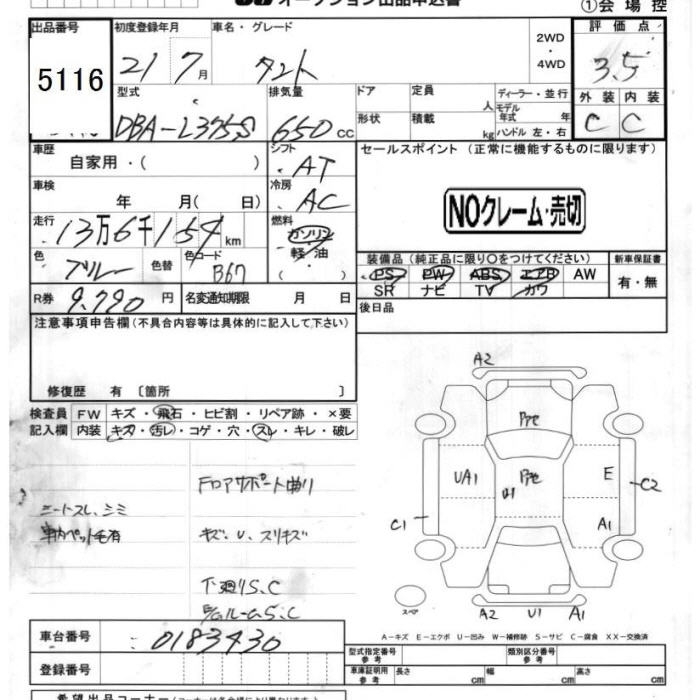 オークション出品申込書
①会場控
出品番号 初度登録年月 車名・グレード 2WD ・ 4WD 評価点
5116 21 7月 タント 3.5
型式 排気量 ドア 定員 人 ディーラー・並行 外装 内装
モデル年式 年
DBA-L375S 650cc 形状 積載 kg ハンドル 左・右 C C
車歴 自家用・( ) シフト AT セールスポイント (正常に機能するものに限ります)
車検 年 月( 日) 冷房 AC NOクレーム・売切
走行 13万6千154km 燃料 ガソリン
軽油
( )
色 ブルー 色替 色コード B67
装備品(純正品に限り○をつけてください) 新車保証書
PS PW ABS エアB AW 有・無
SR ナビ TV カワ
R券 9,790円 名変通知期限 月 日 後日品
注意事項申告欄(不具合内容等は具体的に記入して下さい)
修復歴 有 [箇所 ]
検査員 FW キズ・飛石・ヒビ割・リペア跡・×要
記入欄 内装 キズ・汚レ・コゲ・穴・スレ・キレ・破レ
Fロアサポート曲り
シートスレ、シミ
車内ペット毛有 キズ、U、スリキズ
下廻りS、C
A2
UA1 E C2
U1
C1 A1
スペア
A2 U1 A1
A-キズ E-エクボ U-凹み W-補修跡 S-サビ C-腐食 XX-交換済
車台番号 0183430
型式指定番号 参考 類別区分番号 参考
登録番号 車庫証明用 参考 長さ cm 幅 cm 高さ cm
希望出品コーナー